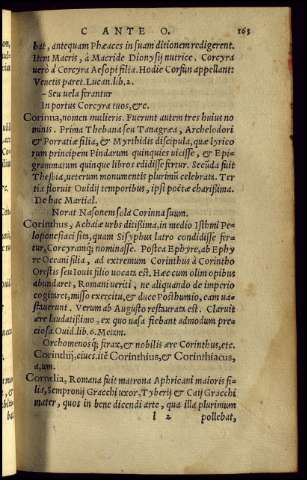 C ANTE O. 163
bat, antequam Phæaces in suam ditionem redigerent.
Item Macris, à Macride Dionysij nutrice. Corcyra
verò à Corcyra Aesopi filia. Hodie Corfun appellant:
Venetis paret. Lucan. lib. 2.
– Seu vela ferantur
In portus Corcyra tuos, &c.
Corinna, nomen mulieris. Fuerunt autem tres huius no
minis. Prima Thebana seu Tanagræa, Archelodori
& Porratiæ filia, & Myrthidis discipula, quæ lyrico
rum principem Pindarum quinquies vicisse, & Epi
grammatum quinque libros edidisse fertur. Secūda fuit
Thespia, veterum monumentis plurimū celebrata. Ter
tia floruit Ouidij temporibus, ipsi poëtæ charissima.
De hac Martial.
Norat Nasonem sola Corinna suum.
Corinthus, Achaiæ vrbs ditissima, in medio Isthmi Pe-
loponesiaci sita, quam Sisyphus latro condidisse fer-
tur, Corcyramq; nominasse. Postea Ephyre, ab Ephy
re Oceani filia, ad extremum Corinthus à Corintho
Orestis seu Iouis filio vocata est. Hæc cum olim opibus
abundaret, Romani veriti, ne aliquando de imperio
cogitaret, misso exercitu, & duce Posthumio, eam va-
stuerunt. Verum ab Augusto restaurata est. Claruit
ære laudatissimo, ex quo vasa fiebant admodum pre-
ciosa. Ouid. lib. 6. Metam.
Orchomenosq; ferax, & nobilis ære Corinthus, etc.
Corinthij, ciues. itē Corinthius, & Corinthiacus,
a, um.
Cornelia, Romana fuit matrona Aphricani maioris fi-
lia, Sempronij Gracchi vxor, Tyberij & Caij Gracchi
mater, quos in bene dicendi arte, qua illa plurimum
l 2 pollebat,